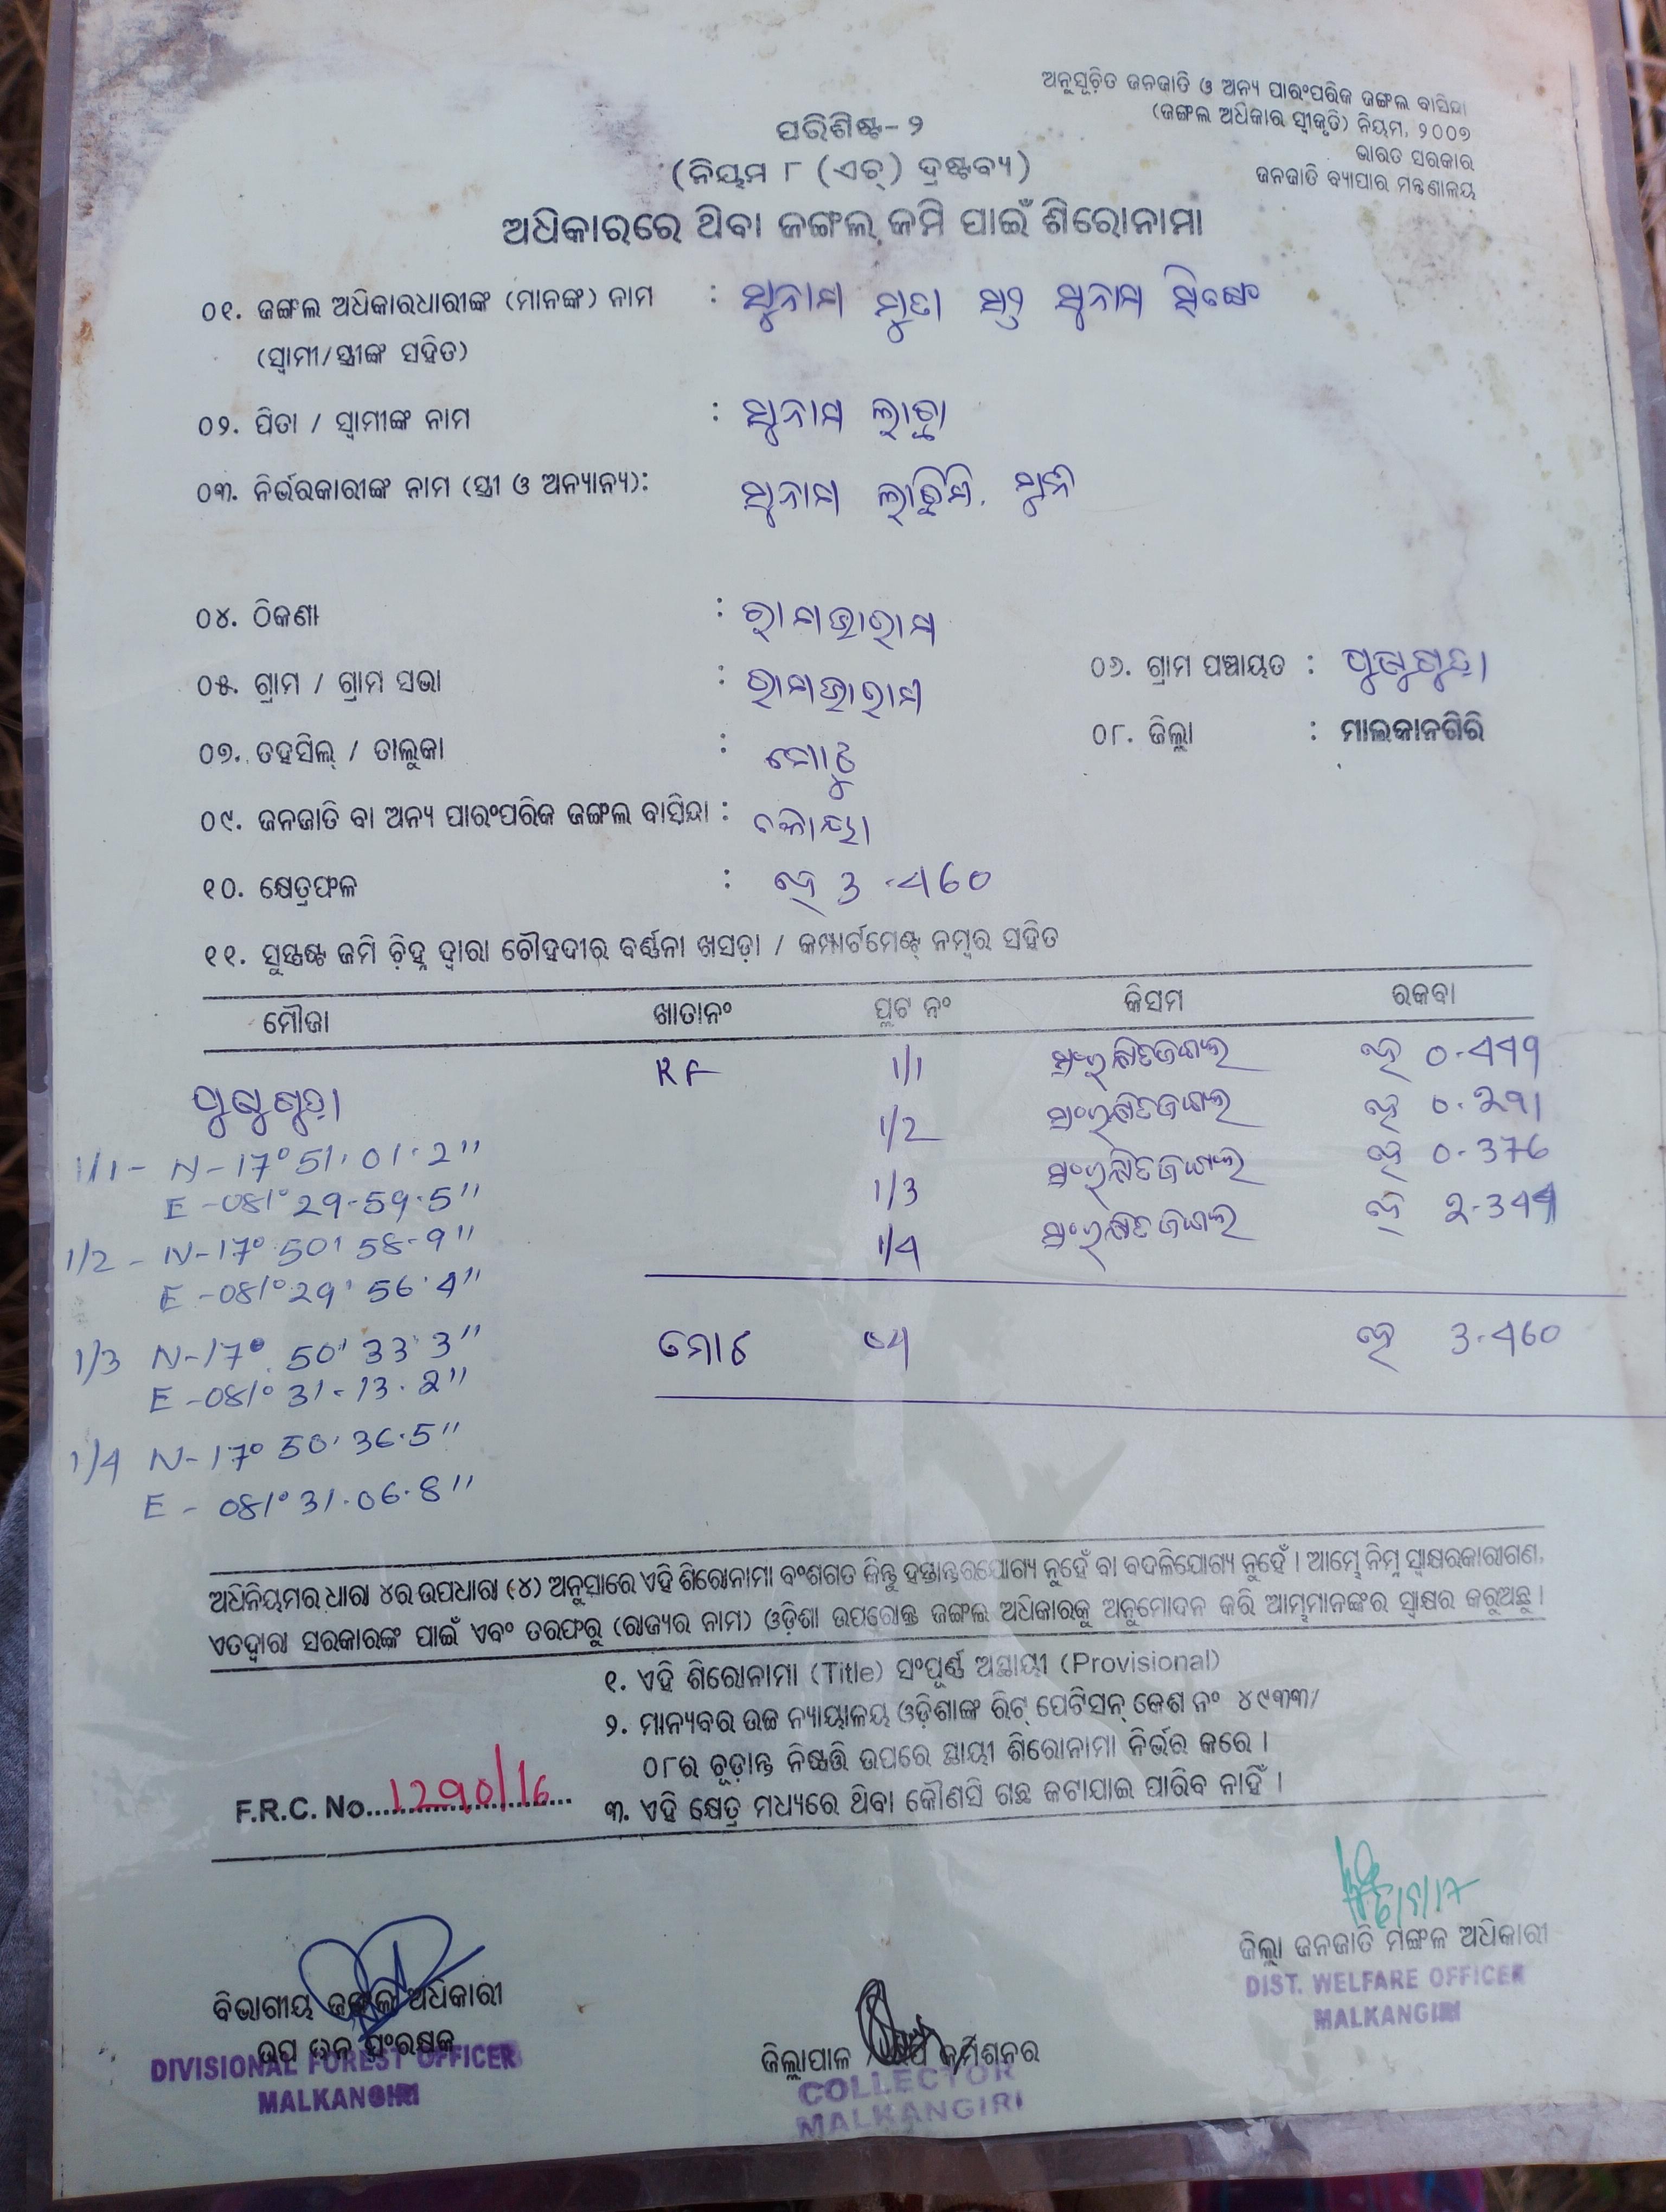 ଅନୁସୂଚିତ ଜନଜାତି ଓ ଅନ୍ୟ ପାରଂପରିକ ଜଙ୍ଗଲ ବାସିନ୍ଦା
(ଜଙ୍ଗଲ ଅଧିକାର ସ୍ୱୀକୃତି) ନିୟମ, ୨୦୦୭
ଭାରତ ସରକାର
ଜନଜାତି ବ୍ୟାପାର ମନ୍ତ୍ରଣାଳୟ
ପରିଶିଷ୍ଟ-୨
(ନିୟମ ୮ (ଏଚ୍) ଦ୍ରଷ୍ଟବ୍ୟ)
ଅଧିକାରରେ ଥିବା ଜଙ୍ଗଲ ଜମି ପାଇଁ ଶିରୋନାମା
୦୧. ଜଙ୍ଗଲ ଅଧିକାରଧାରୀଙ୍କ (ମାନଙ୍କ) ନାମ :
(ସ୍ୱାମୀ/ସ୍ତ୍ରୀଙ୍କ ସହିତ)
୦୨. ପିତା / ସ୍ୱାମୀଙ୍କ ନାମ :
୦୩. ନିର୍ଭରକାରୀଙ୍କ ନାମ (ସ୍ତ୍ରୀ ଓ ଅନ୍ୟାନ୍ୟ):
୦୪. ଠିକଣା :
୦୫. ଗ୍ରାମ / ଗ୍ରାମ ସଭା : ୦୬. ଗ୍ରାମ ପଞ୍ଚାୟତ :
୦୭. ତହସିଲ୍ / ତାଲୁକା : ମୋଟୁ ୦୮. ଜିଲ୍ଲା : ମାଲକାନଗିରି
୦୯. ଜନଜାତି ବା ଅନ୍ୟ ପାରଂପରିକ ଜଙ୍ଗଲ ବାସିନ୍ଦା : କୋୟା
୧୦. କ୍ଷେତ୍ରଫଳ : ହେ 3.460
୧୧. ସୁସ୍ପଷ୍ଟ ଜମି ଚିହ୍ନ ଦ୍ୱାରା ଚୌହଦୀର ବର୍ଣ୍ଣନା ଖସଡ଼ା / କମ୍ପାର୍ଟମେଣ୍ଟ୍ ନମ୍ବର ସହିତ
ମୌଜା ଖାତାନଂ ପ୍ଲଟ ନଂ କିସମ ରକବା
RF 1/1 ସଂରକ୍ଷିତ ଜଙ୍ଗଲ ହେ 0.449
1/2 ସଂରକ୍ଷିତ ଜଙ୍ଗଲ ହେ 0.291
1/3 ସଂରକ୍ଷିତ ଜଙ୍ଗଲ ହେ 0.376
1/4 ସଂରକ୍ଷିତ ଜଙ୍ଗଲ ହେ 2.344
1/1 - N-17° 51' 01.2"
E-081° 29-59.5"
1/2 - N-17° 50' 58.9"
E-081° 29' 56.4"
1/3 N-17° 50' 33.3"
E-081° 31-13.2"
ମୋଟ ହେ 3.460
1/4 N-17° 50' 36.5"
E-081° 31.06.8"
ଅଧିନିୟମର ଧାରା ୪ର ଉପଧାରା (୪) ଅନୁସାରେ ଏହି ଶିରୋନାମା ବଂଶଗତ କିନ୍ତୁ ହସ୍ତାନ୍ତରଯୋଗ୍ୟ ନୁହେଁ ବା ବଦଳିଯୋଗ୍ୟ ନୁହେଁ । ଆମ୍ଭେ ନିମ୍ନ ସ୍ୱାକ୍ଷରକାରୀଗଣ,
ଏତଦ୍ୱାରା ସରକାରଙ୍କ ପାଇଁ ଏବଂ ତରଫରୁ (ରାଜ୍ୟର ନାମ) ଓଡ଼ିଶା ଉପରୋକ୍ତ ଜଙ୍ଗଲ ଅଧିକାରକୁ ଅନୁମୋଦନ କରି ଆମ୍ଭମାନଙ୍କର ସ୍ୱାକ୍ଷର କରୁଅଛୁ ।
୧. ଏହି ଶିରୋନାମା (Title) ସଂପୂର୍ଣ୍ଣ ଅସ୍ଥାୟୀ (Provisional)
୨. ମାନ୍ୟବର ଉଚ୍ଚ ନ୍ୟାୟାଳୟ ଓଡ଼ିଶାଙ୍କ ରିଟ୍ ପେଟିସନ୍ କେଶ ନଂ ୪୯୩୩/
୦୮ର ଚୂଡ଼ାନ୍ତ ନିଷ୍ପତ୍ତି ଉପରେ ସ୍ଥାୟୀ ଶିରୋନାମା ନିର୍ଭର କରେ ।
୩. ଏହି କ୍ଷେତ୍ର ମଧ୍ୟରେ ଥିବା କୌଣସି ଗଛ କଟାଯାଇ ପାରିବ ନାହିଁ ।
F.R.C. No. 1290/16
ଜିଲ୍ଲା ଜନଜାତି ମଙ୍ଗଳ ଅଧିକାରୀ
DIST. WELFARE OFFICER
MALKANGIRI
ବିଭାଗୀୟ ଜଙ୍ଗଲ ଅଧିକାରୀ
ଉପ ବନ ସଂରକ୍ଷକ
DIVISIONAL FOREST OFFICER
MALKANGIRI
ଜିଲ୍ଲାପାଳ / କମିଶନର
COLLECTOR
MALKANGIRI